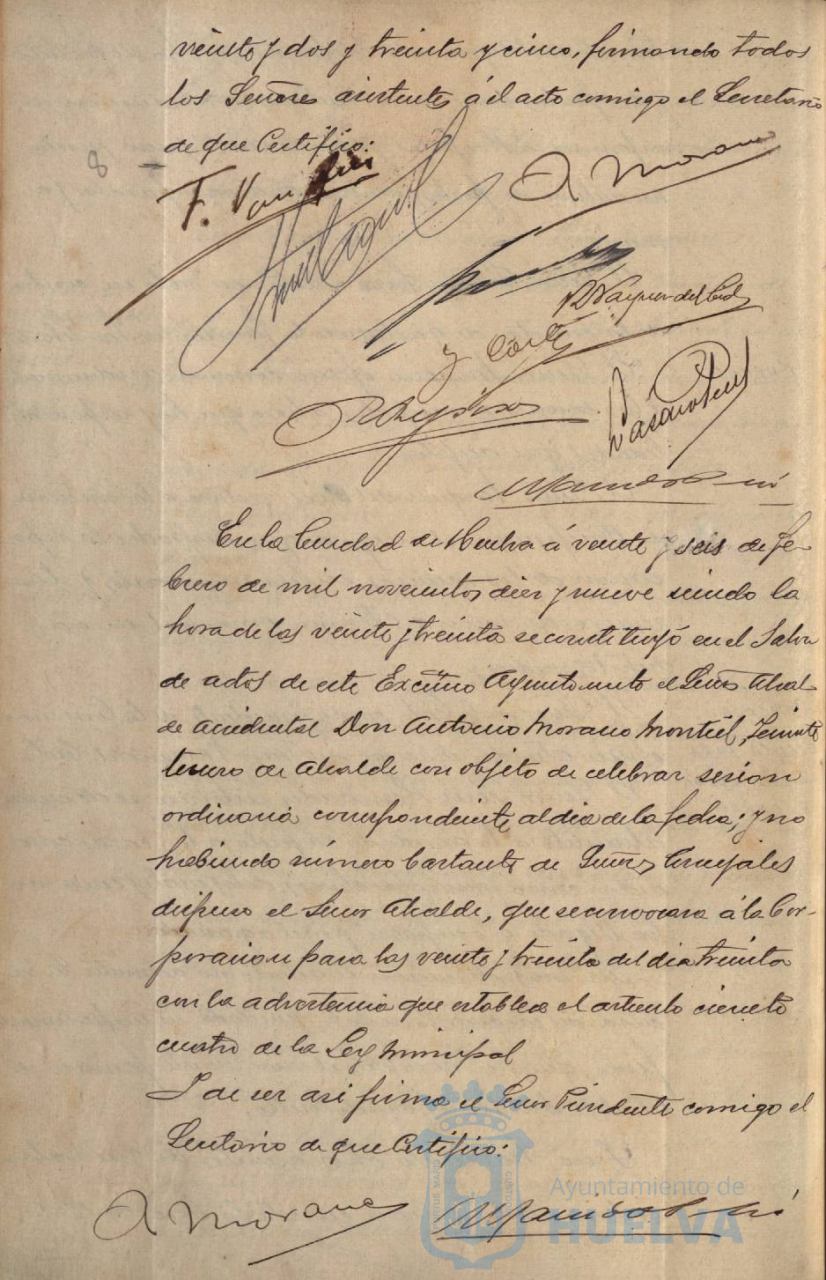 veinte y dos y treinta y cinco, firmando todos
los Señores asistentes á el acto comigo el Secretario
de que Certifico:
8
F.
A Morano
y
En la Ciudad de Huelva á veinte y seis de fe-
brero de mil novecientos diez y nueve siendo la
hora de las veinte y treinta se constituyó en el Salon
de actos de este Excmo Ayuntamiento el Señor Alcal
de accidental Don Antonio Morano Montiel, Teniente
tercero de Alcalde con objeto de celebrar sesion
ordinaria correspondiente al dia de la fecha; y no
habiendo número bastante de Señores Concejales
dispuso el Señor Alcalde, que se convocara á la Cor-
poracion para las veinte y treinta del dia treinta
con la advertencia que establece el articulo ciento
cuatro de la Ley Municipal
Y de ser asi firma el Señor Presidente comigo el
Secretario de que Certifico:
A Morano
Ayuntamiento de
HUELVA